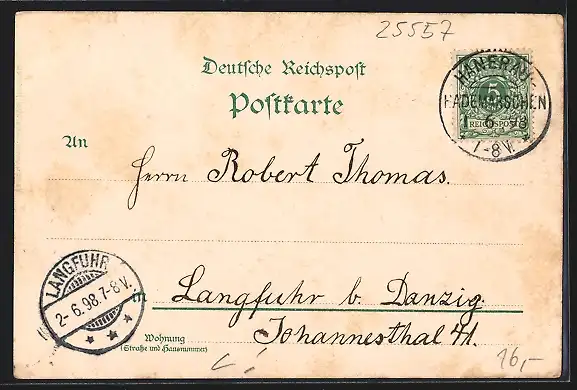 25557
Deutsche Reichspost
Postkarte
HANERAU-
HADEMARSCHEN
1 6 98
7-8 V.
5
REICHSPOST
An
Herrn Robert Thomas.
LANGFUHR
2-6.98.7-8V.
in Langfuhr b. Danzig.
Johannesthal 41.
Wohnung
(Straße und Hausnummer)
16,-